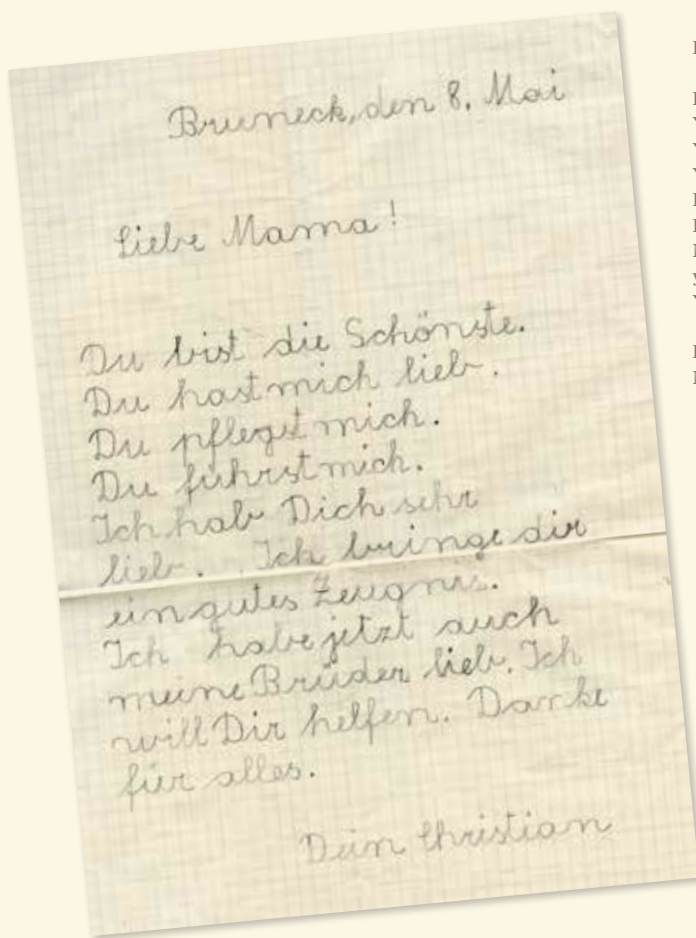 Bruneck, den 8. Mai
Liebe Mama!
Du bist die Schönste.
Du hast mich lieb.
Du pflegst mich.
Du führst mich.
Ich hab Dich sehr
lieb. Ich bringe dir
ein gutes Zeugnis.
Ich habe jetzt auch
meine Brüder lieb. Ich
will Dir helfen. Danke
für alles.
Dein Christian